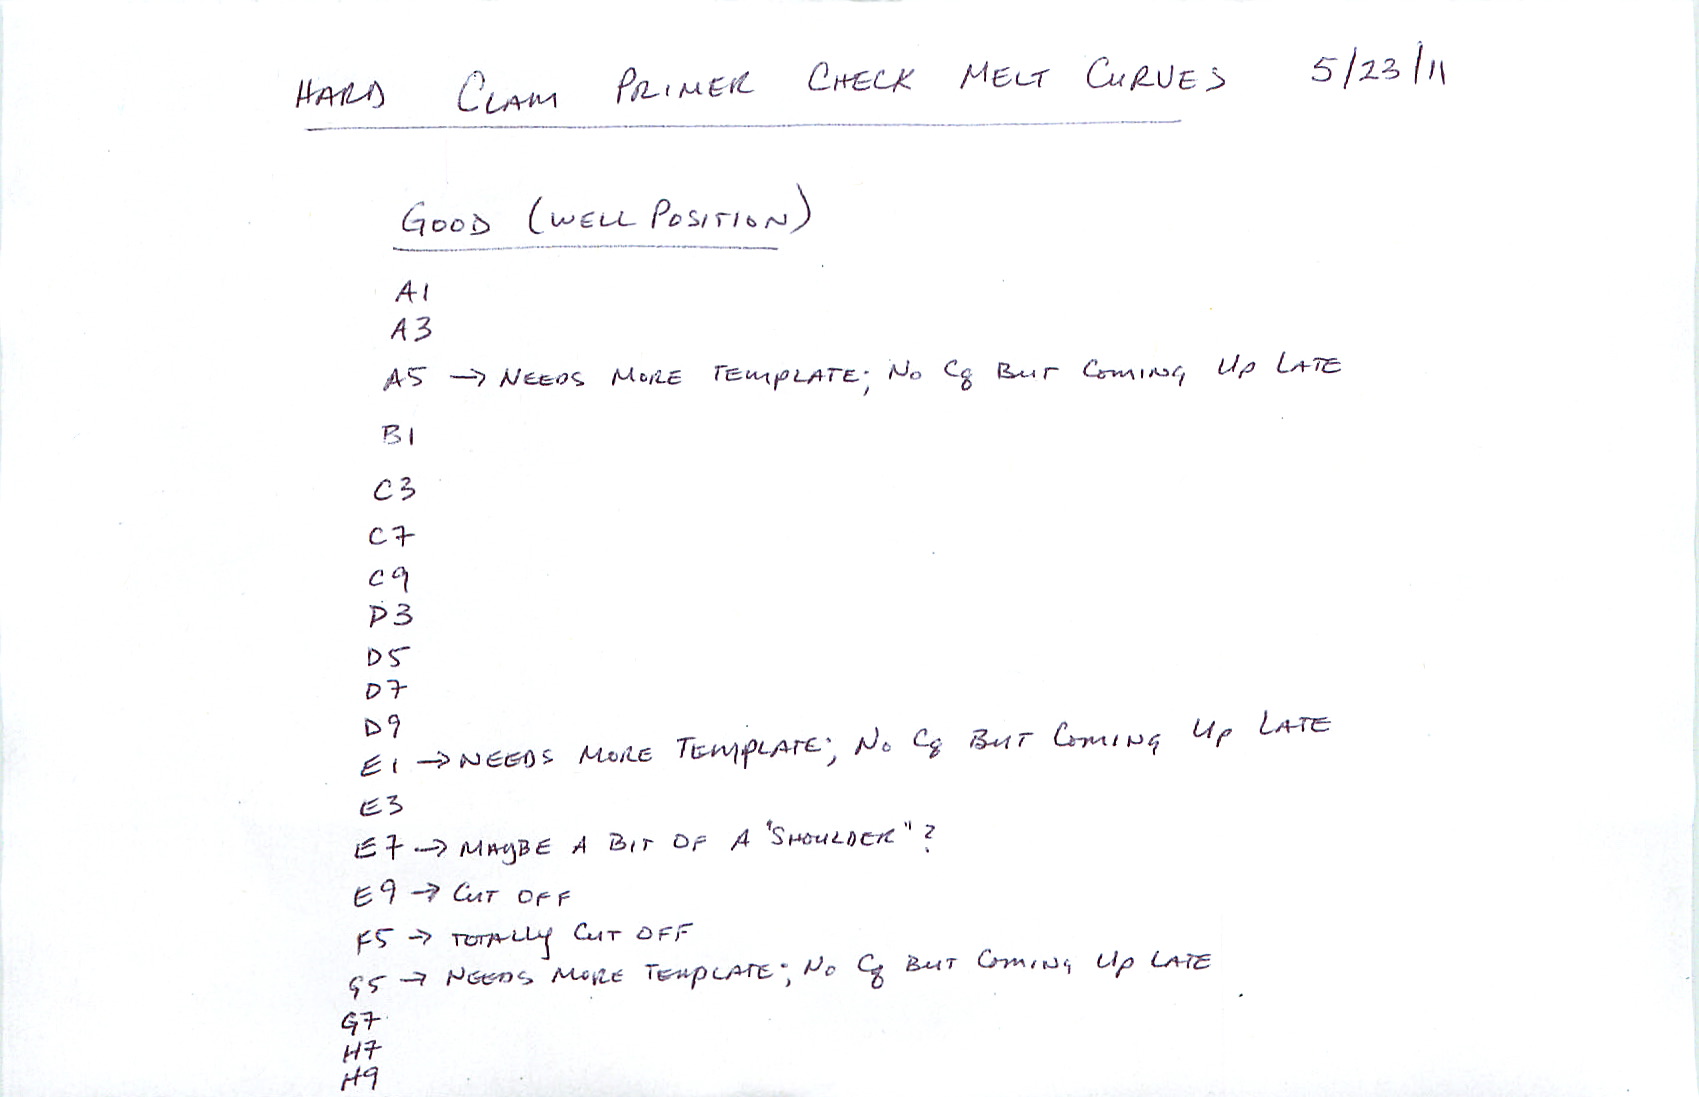 HARD CLAM PRIMER CHECK MELT CURVES 5/23/11
GOOD (WELL POSITION)
A1
A3
A5 → NEEDS MORE TEMPLATE; NO Cq BUT COMING UP LATE
B1
C3
C7
C9
D3
D5
D7
D9
E1 → NEEDS MORE TEMPLATE; NO Cq BUT COMING UP LATE
E3
E7 → MAYBE A BIT OF A "SHOULDER"?
E9 → CUT OFF
F5 → TOTALLY CUT OFF
G5 → NEEDS MORE TEMPLATE; NO Cq BUT COMING UP LATE
G7
H7
H9